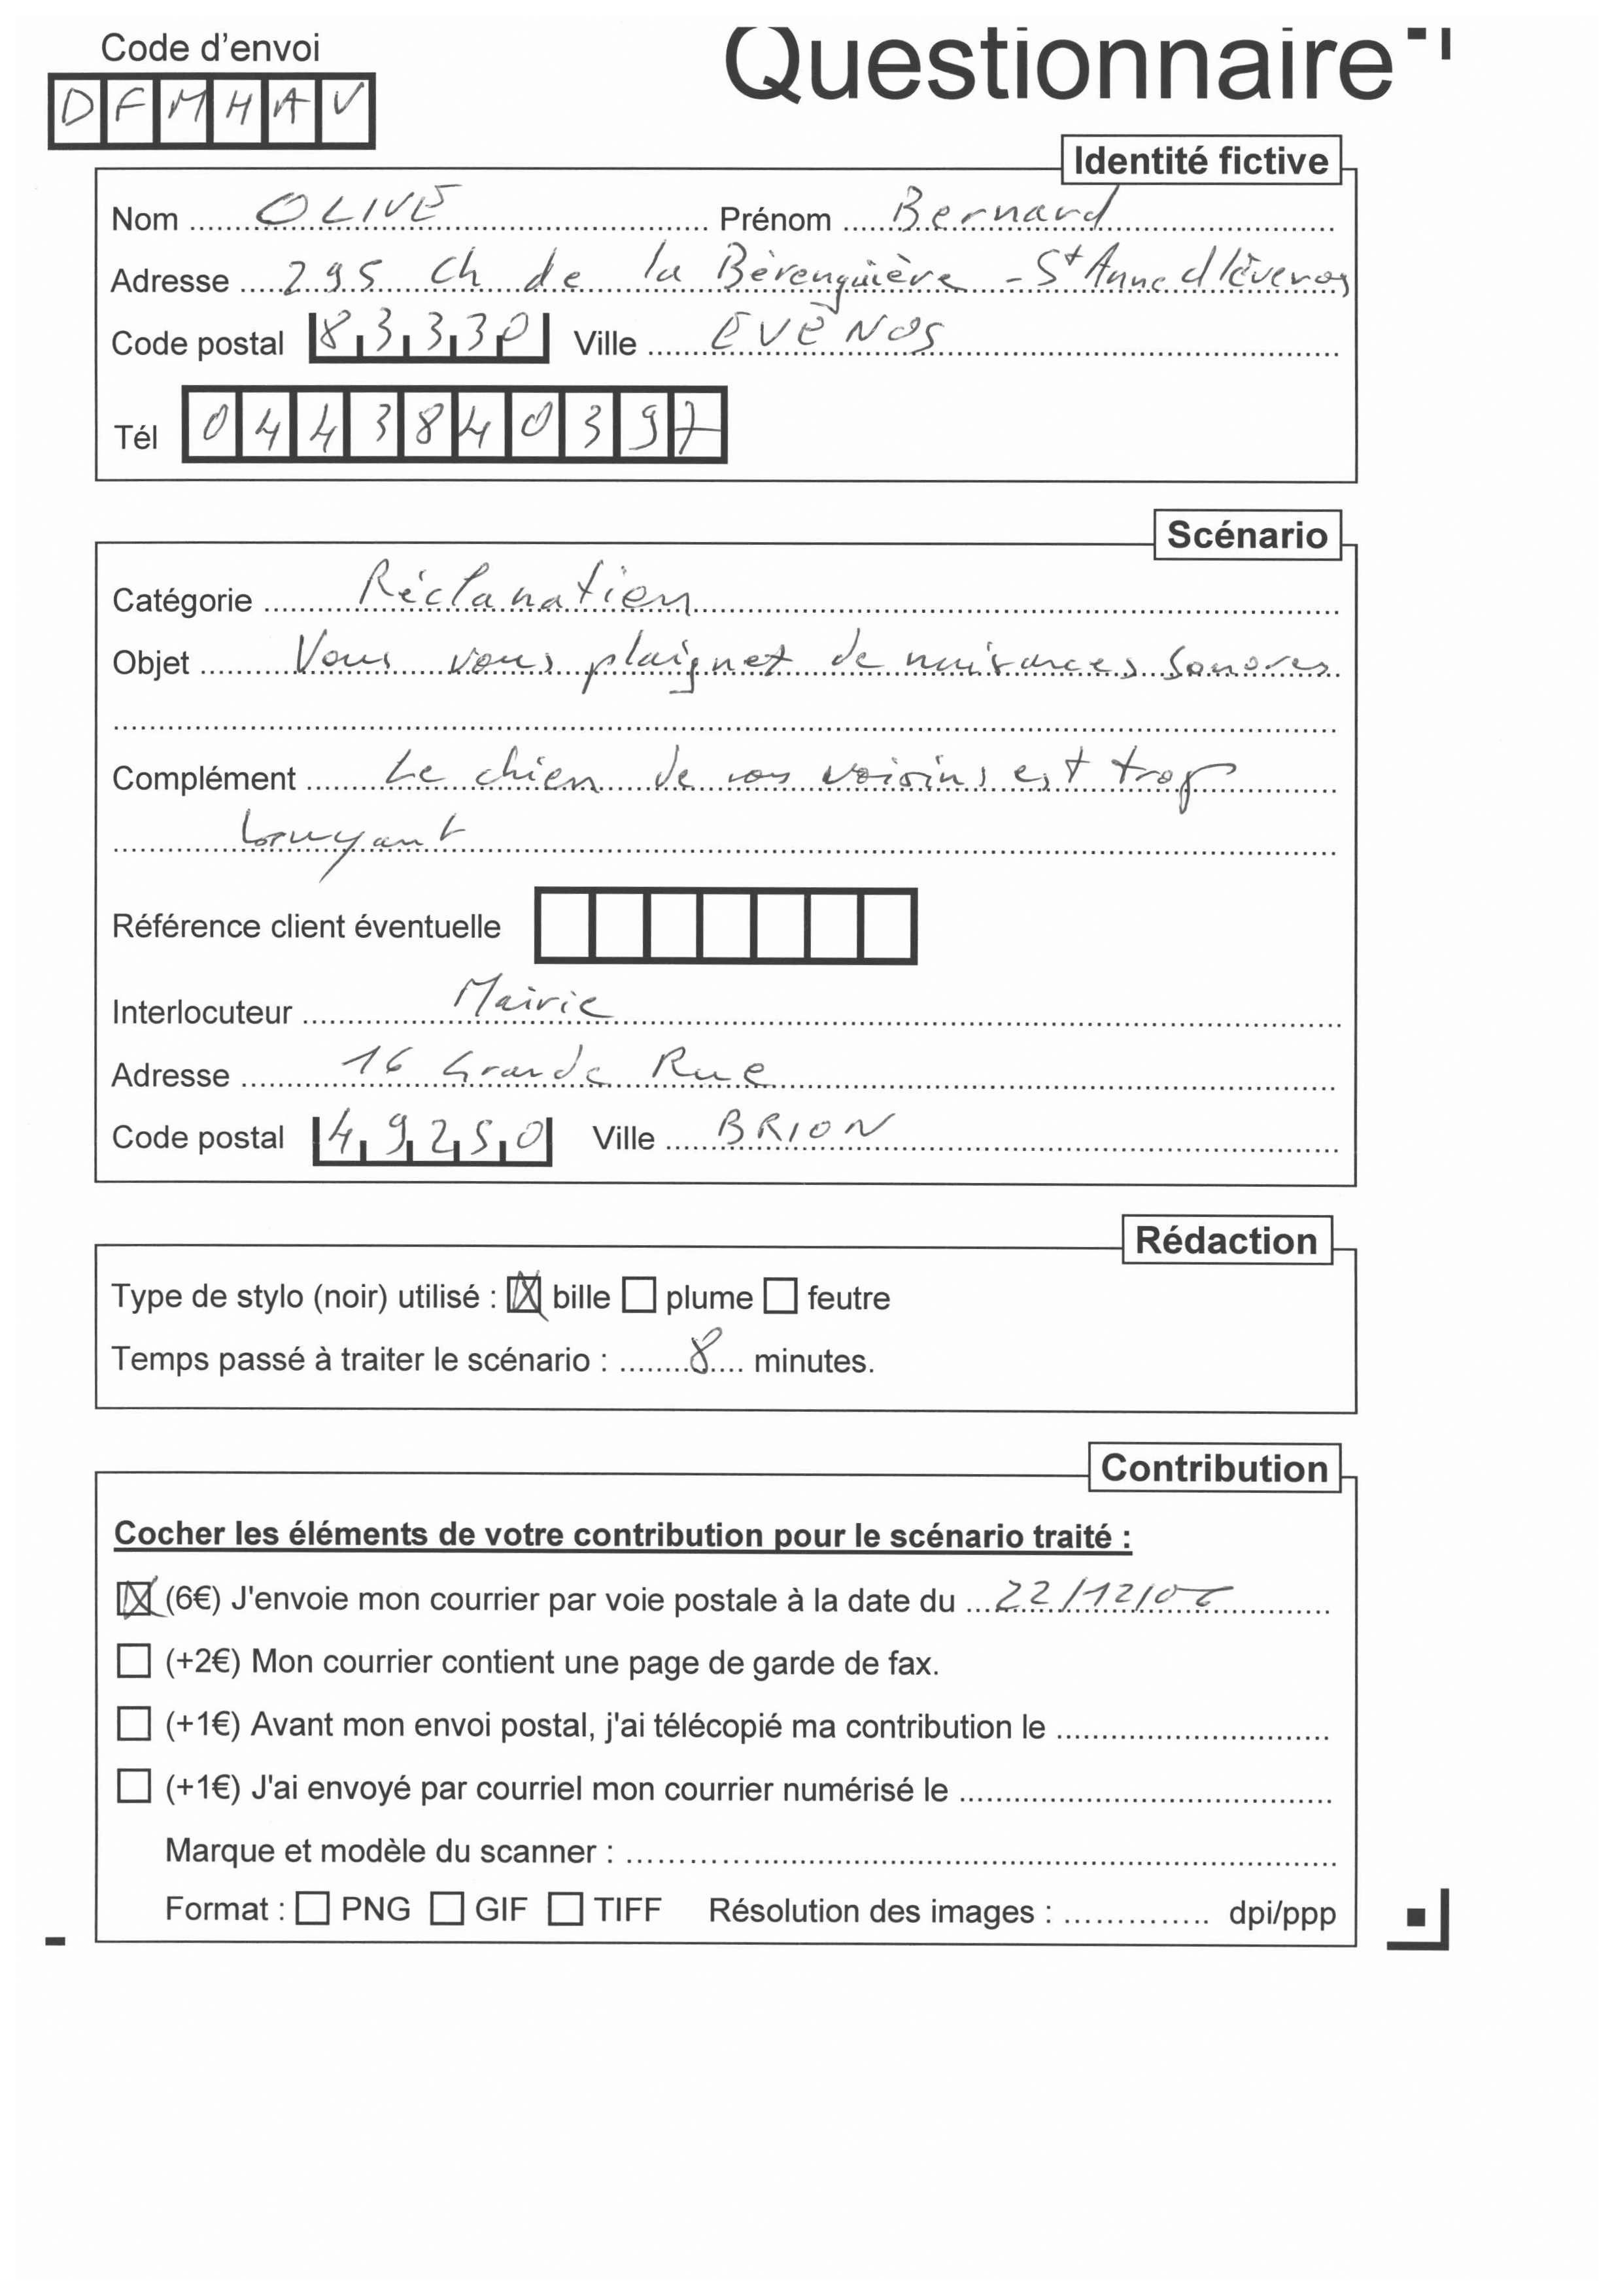 Code d'envoi
DFMHAV
Questionnaire
Identité fictive
Nom OLIVE Prénom Bernard
Adresse 295 ch de la Bérenguière - St Anne d'Evenos
Code postal 83330 Ville EVENOS
Tél 0443840397
Scénario
Catégorie Réclamation
Objet Vous vous plaignez de nuisances sonores
Complément Le chien de vos voisins est trop
bruyant
Référence client éventuelle
Interlocuteur Mairie
Adresse 16 Grande Rue
Code postal 49250 Ville BRION
Rédaction
Type de stylo (noir) utilisé : bille plume feutre
Temps passé à traiter le scénario : 8 minutes.
Contribution
Cocher les éléments de votre contribution pour le scénario traité :
(6€) J'envoie mon courrier par voie postale à la date du
(+2€) Mon courrier contient une page de garde de fax.
(+1€) Avant mon envoi postal, j'ai télécopié ma contribution le
(+1€) J'ai envoyé par courriel mon courrier numérisé le
Marque et modèle du scanner :
Format : PNG GIF TIFF Résolution des images : dpi/ppp